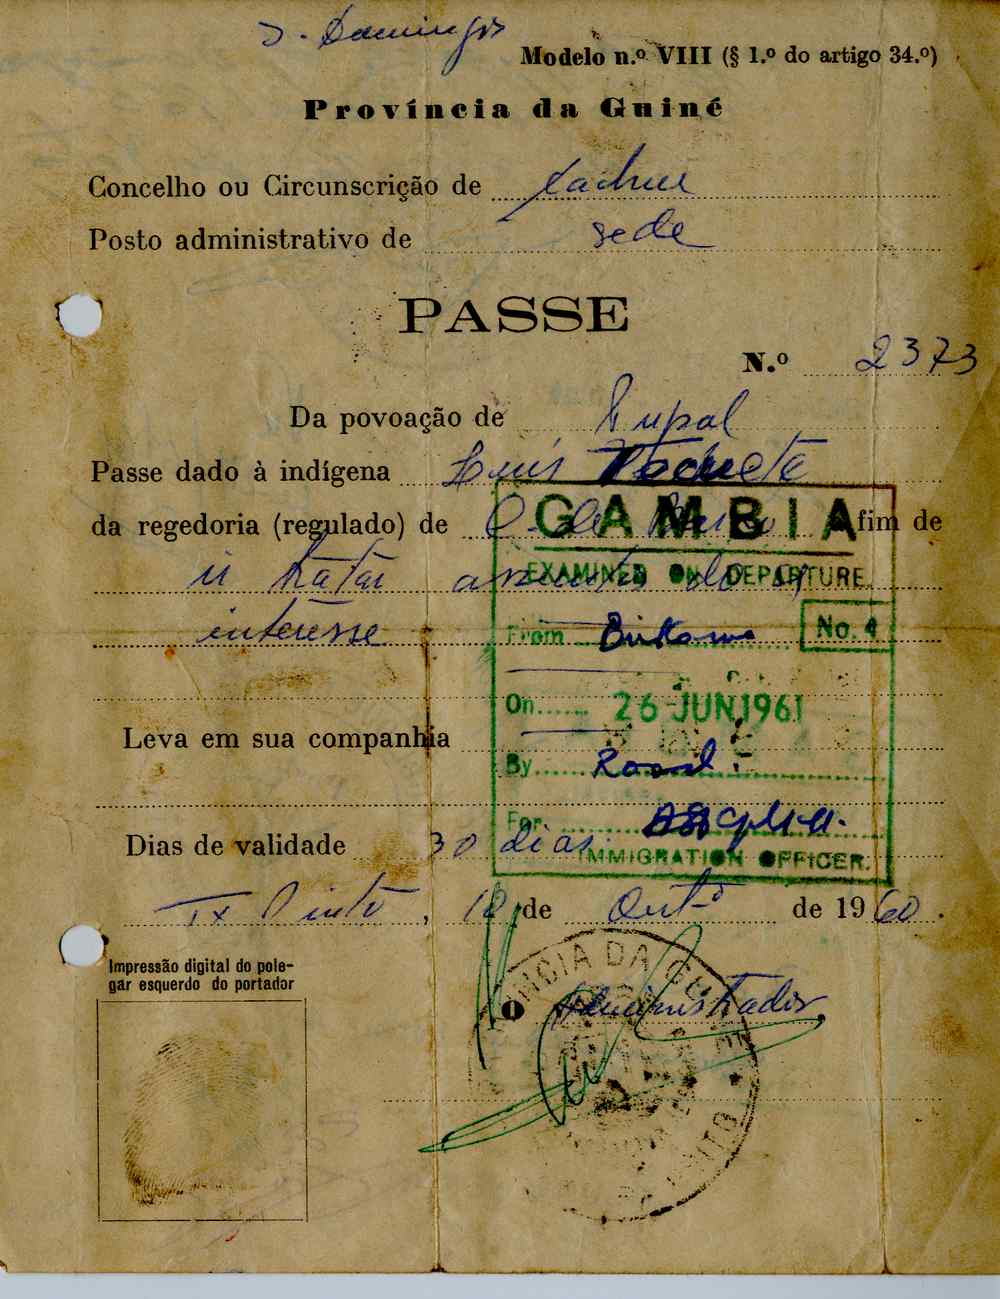 S. Domingos
Modelo n.º VIII (§ 1.º do artigo 34.º)
Província da Guiné
Concelho ou Circunscrição de Cacheu
Posto administrativo de sede
PASSE
N.º 2373
Da povoação de
Passe dado à indígena Luís
da regedoria (regulado) de afim de
ir tratar assuntos do s/
interesse
Leva em sua companhia
Dias de validade 30 dias
Tx Pinto, 18 de Outº de 1960.
GAMBIA
EXAMINED ON DEPARTURE
From Brikama No. 4
On 26 JUN 1961
By Road
For
IMMIGRATION OFFICER.
Impressão digital do pole-
gar esquerdo do portador
O Administrador